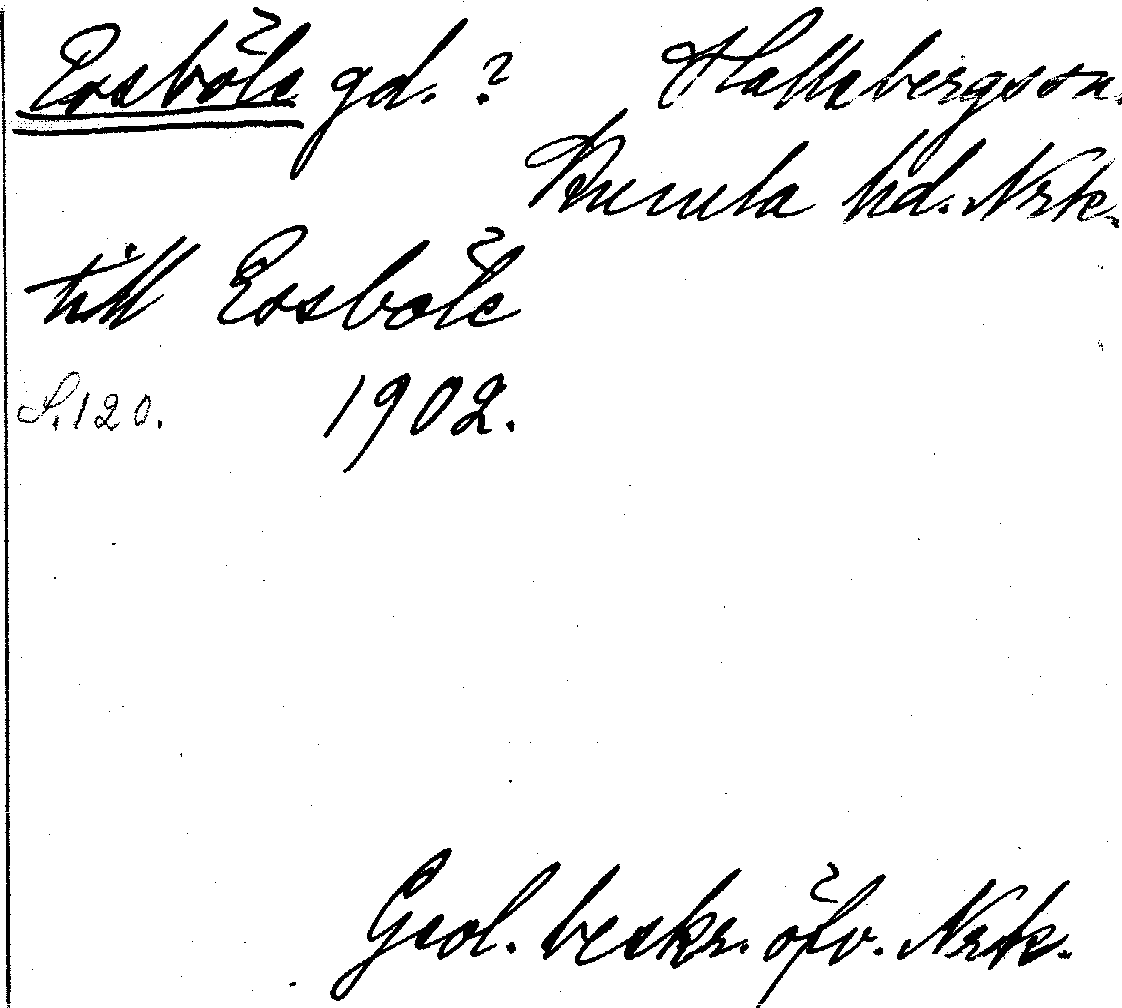 Essböle gd. ? Hallsbergs sn.
Kumla hd. Nrke.
till Essböle
S. 120. 1902.
Geol. beskr. öfv. Nrk.